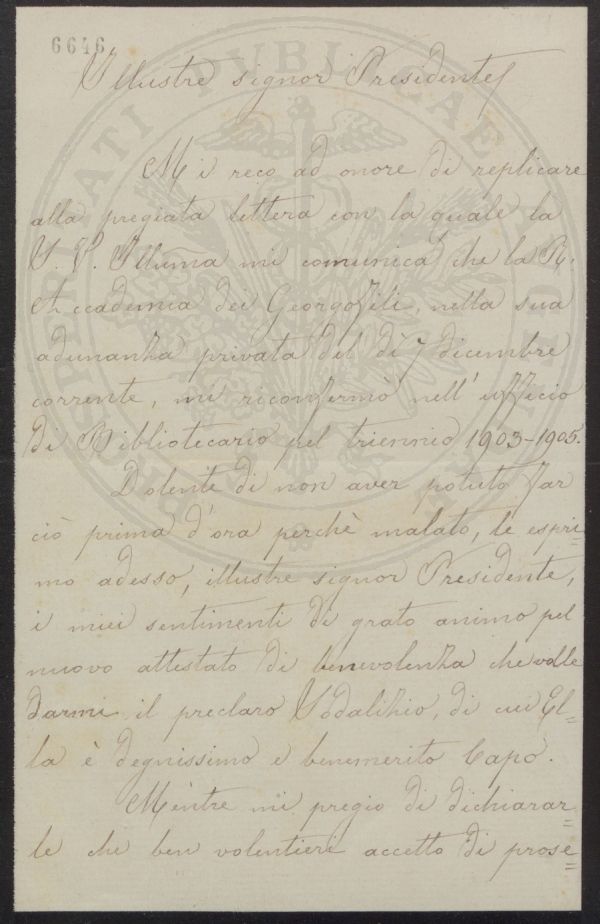 6646
Illustre signor Presidente
Mi reco ad onore di replicare
alla pregiata lettera con la quale la
S. V. Illuma mi comunica che la R.
Accademia dei Georgofili, nella sua
adunanza privata del dì 7 dicembre
corrente, mi riconfermò nell'ufficio
di Bibliotecario pel triennio 1903-1905.
Dolente di non aver potuto far
ciò prima d'ora perchè malato, le espri=
mo adesso, illustre signor Presidente,
i miei sentimenti di grato animo pel
nuovo attestato di benevolenza che volle
darmi il preclaro Sodalizio, di cui El=
la è degnissimo e benemerito Capo.
Mentre mi pregio di dichiarar=
le che ben volentieri accetto di prose=
PROSPERITATI PVBLICAE